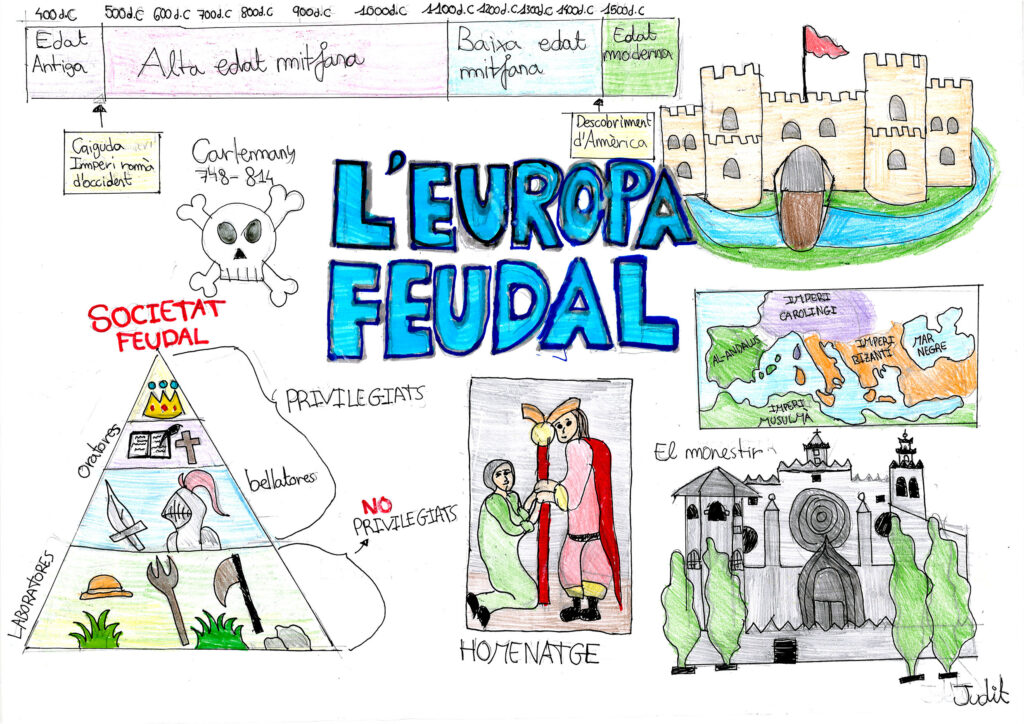 400d.C 500d.C 600d.C 700d.C 800d.C 900d.C 1000d.C 1100d.C 1200d.C 1300d.C 1400d.C 1500d.C
Edat
Antiga
Alta edat mitjana
Baixa edat
mitjana
Edat
moderna
Caiguda
Imperi romà
d'occident
Descobriment
d'Amèrica
Carlemany
748-814
L'EUROPA
FEUDAL
SOCIETAT
FEUDAL
PRIVILEGIATS
oratores
bellatores
NO
PRIVILEGIATS
LABORATORES
HOMENATGE
IMPERI
CAROLINGI
AL-ANDALUS
IMPERI
BIZANTI
MAR
NEGRE
IMPERI
MUSULMÀ
El monestir
Judit